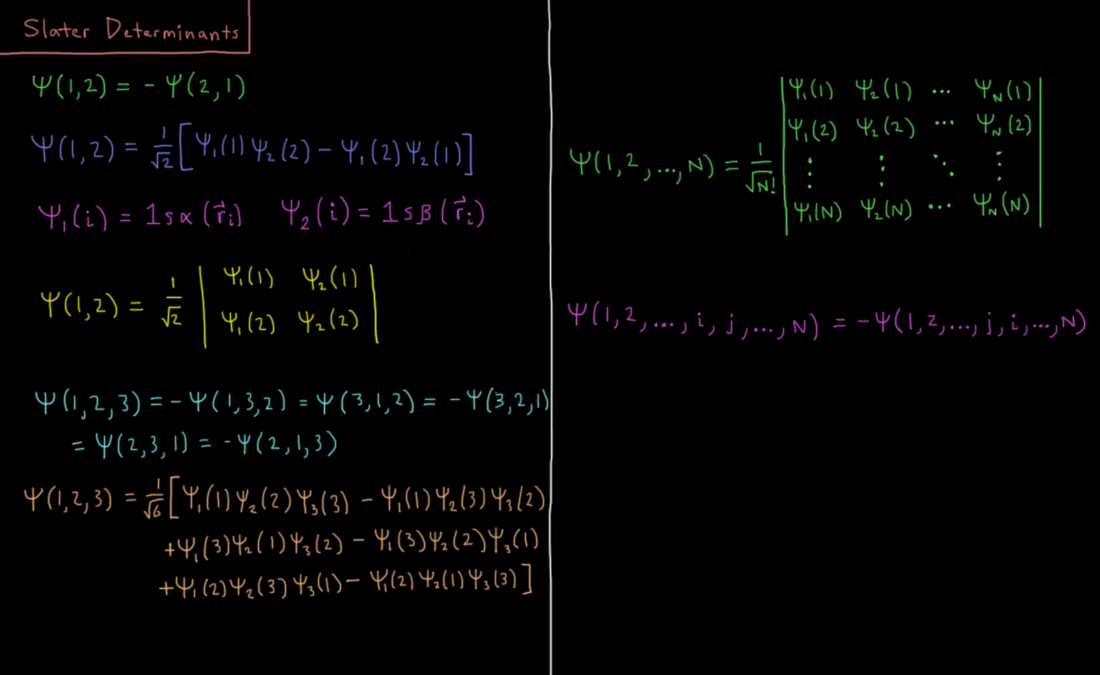 Slater Determinants
Ψ(1,2) = - Ψ(2,1)
Ψ(1,2) = 1/√2 [Ψ₁(1) Ψ₂(2) - Ψ₁(2) Ψ₂(1)]
Ψ₁(i) = 1sα(r⃗ᵢ) Ψ₂(i) = 1sβ(r⃗ᵢ)
Ψ(1,2) = 1/√2 | Ψ₁(1) Ψ₂(1) |
| Ψ₁(2) Ψ₂(2) |
Ψ(1,2,3) = -Ψ(1,3,2) = Ψ(3,1,2) = -Ψ(3,2,1)
= Ψ(2,3,1) = -Ψ(2,1,3)
Ψ(1,2,3) = 1/√6 [Ψ₁(1)Ψ₂(2)Ψ₃(3) - Ψ₁(1)Ψ₂(3)Ψ₃(2)
+Ψ₁(3)Ψ₂(1)Ψ₃(2) - Ψ₁(3)Ψ₂(2)Ψ₃(1)
+Ψ₁(2)Ψ₂(3)Ψ₃(1) - Ψ₁(2)Ψ₂(1)Ψ₃(3)]
Ψ(1,2,...,N) = 1/√N! | Ψ₁(1) Ψ₂(1) ... Ψ_N(1) |
| Ψ₁(2) Ψ₂(2) ... Ψ_N(2) |
| ⋮ ⋮ ⋱ ⋮ |
| Ψ₁(N) Ψ₂(N) ... Ψ_N(N) |
Ψ(1,2,...,i,j,...,N) = -Ψ(1,2,...,j,i,...,N)